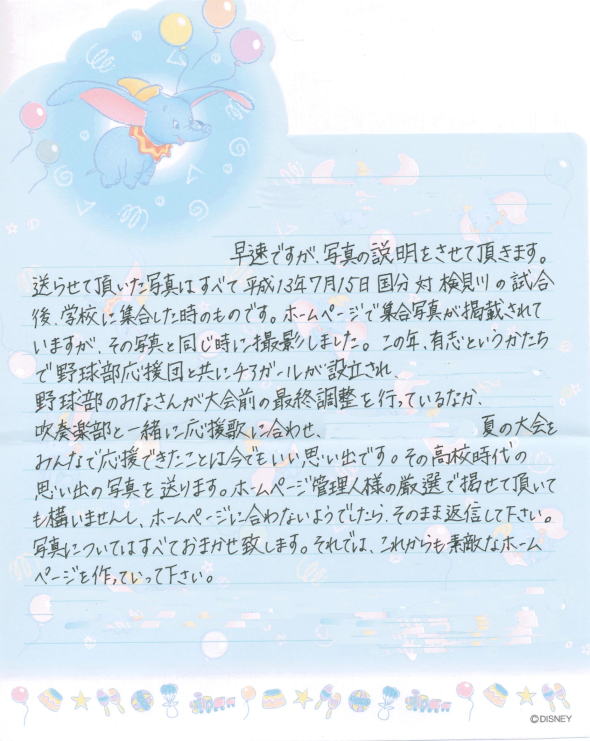 早速ですが、写真の説明をさせて頂きます。
送らせて頂いた写真はすべて平成13年7月15日国分対検見川の試合
後、学校に集合した時のものです。ホームページで集合写真が掲載されて
いますが、その写真と同じ時に撮影しました。この年、有志というかたち
で野球部応援団と共にチアガールが設立され、
野球部のみなさんが大会前の最終調整を行っているなか、
吹奏楽部と一緒に応援歌に合わせ、 夏の大会を
みんなで応援できたことは今でもいい思い出です。その高校時代の
思い出の写真を送ります。ホームページ管理人様の厳選で掲せて頂いて
も構いませんし、ホームページに合わないようでしたら、そのまま返信して下さい。
写真についてはすべておまかせ致します。それでは、これからも素敵なホーム
ページを作っていって下さい。
©DISNEY